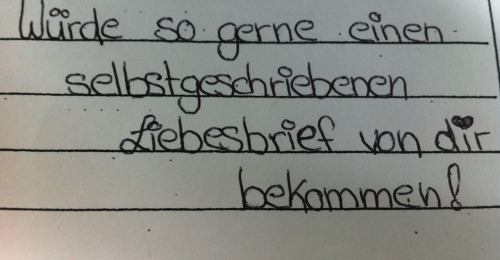 Würde so gerne einen
selbstgeschriebenen
Liebesbrief von dir
bekommen!